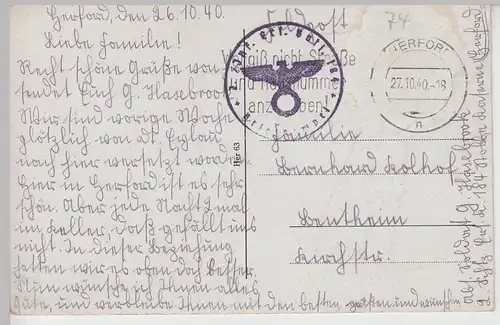 Herford, den 26.10.40.
Feldpost
74
Liebe Familie!
Recht schöne Grüße von hier
sendet Euch G. Haselbrook
Wir sind vorige Woche
plötzlich von dt. Eylau
nach hier versetzt worden.
Hier in Herford ist es sehr
schön. Aber jede Nacht 2 mal
im Keller, daß gefällt uns
nicht. In dieser Beziehung
hatten wir es oben doch besser.
Nun wünsche ich Ihnen alles
Gute, und verbleibe Ihnen mit den besten Grüßen und wünschen
Vergiß nicht Straße
und Hausnummer
anzugeben!
HERFORD
27.10.40.-18
n
Familie
Bernhard Kolhof
Bentheim
Kirchstr.
Abs. Soldat G.
2. Schtz. Ers. 184
Herford